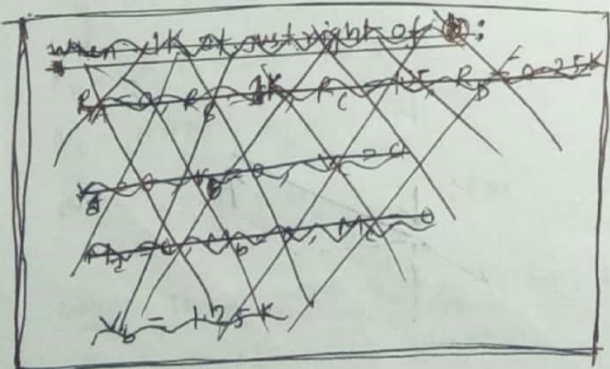 When 1K at just right of B:
R_A = 0 R_B = 1K R_C = 1.25 R_D = -0.25K
= 0 V_B = 0, V_C = 0
= 0, M_C = 0
V_b = 1.25K